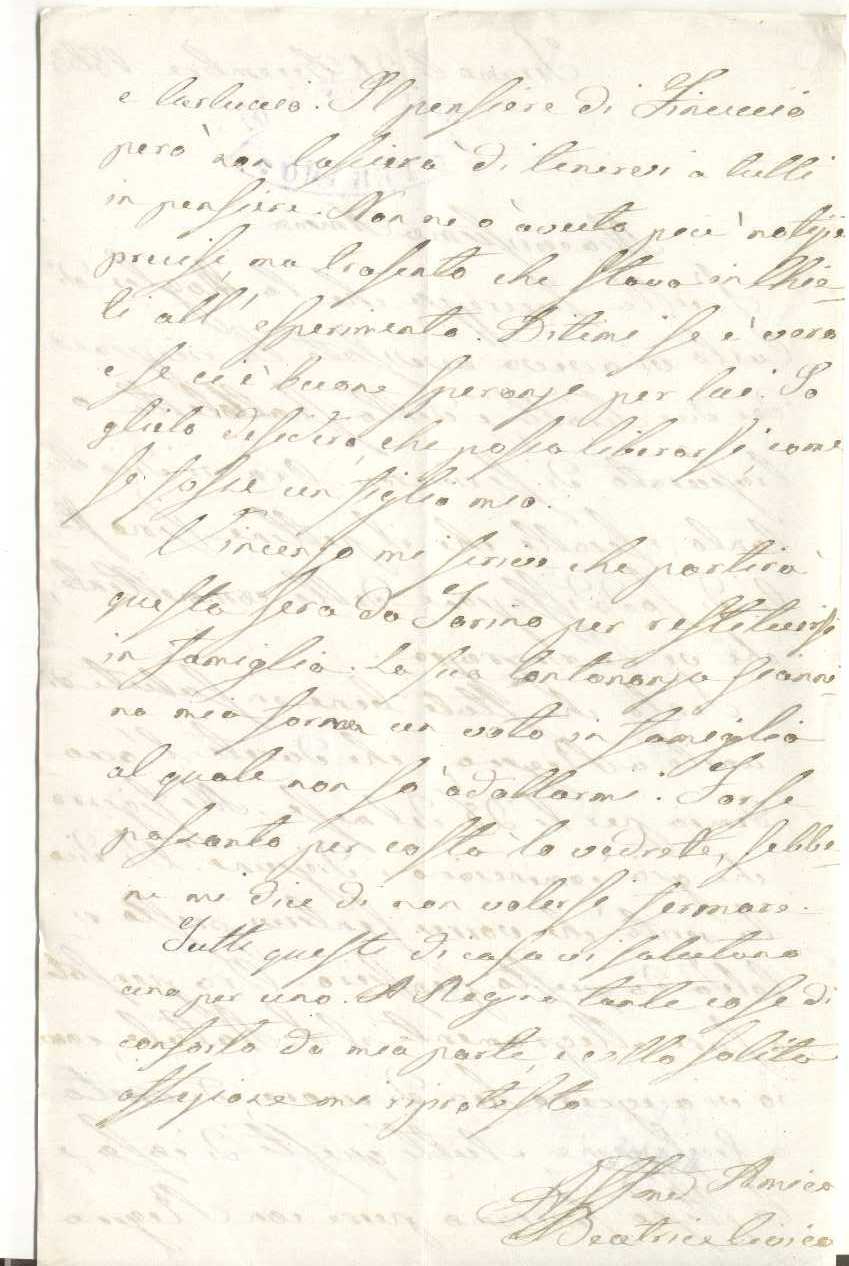 e Carluccio. Il pensiere di Finuccio
però non lascierà di tenervi a tutti
in pensiere. Non ne ò avuto più notizie
precise, ma trasento che stava in Chie-
ti all'esperimento. Ditemi se è vero
e se ci è buone speranze per lui. Io
glielo desidero, che possa liberarsi come
se fosse un figlio mio.
Vincenzo mi scrive che partirà
questa sera da Torino per restituirsi
in famiglia. La sua lontananza Gianni-
na mia forma un voto in famiglia
al quale non sò adattarmi. Forse
passanto per costà lo vedrete, sebbe-
ne mi dice di non volersi fermare.
Tutti questi di casa vi salutano
uno per uno. A Regna tante cose di
conforto da mia parte, e colla solita
affezione mi riprotesto
Aff.ma Amica
Beatrice Civico